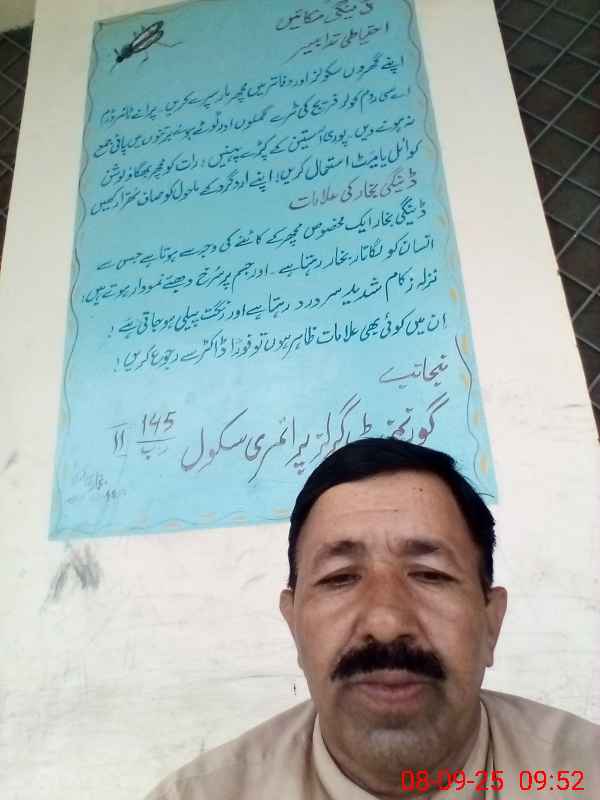 ڈینگی مکائیں
احتیاطی تدابیر
اپنے گھروں سکولز اور دفاتر میں مچھر مار سپرے کریں۔ پرانے ٹائر ڈرم
ایسی روم کولر فریج کی ٹرے گملوں اور ٹوٹے ہوئے برتنوں میں پانی جمع
نہ ہونے دیں۔ پوری آستین کے کپڑے پہنیں؛ رات کو مچھر بھگاؤ لوشن
کوائل یا میٹ استعمال کریں! اپنے اردگرد کے ماحول کو صاف ستھرا رکھیں
ڈینگی بخار کی علامات
ڈینگی بخار ایک مخصوص مچھر کے کاٹنے کی وجہ سے ہوتا ہے جس سے
انسان کو لگاتار بخار رہتا ہے۔ اور جسم پر سُرخ دھبے نمودار ہوتے ہیں؛
نزلہ زکام شدید سر درد رہتا ہے اور رنگت پیلی ہو جاتی ہے!
ان میں کوئی بھی علامات ظاہر ہوں تو فوراً ڈاکٹر سے رجوع کریں!
منجانب
گورنمنٹ گرلز پرائمری سکول 145 رب II
08-09-25 09:52